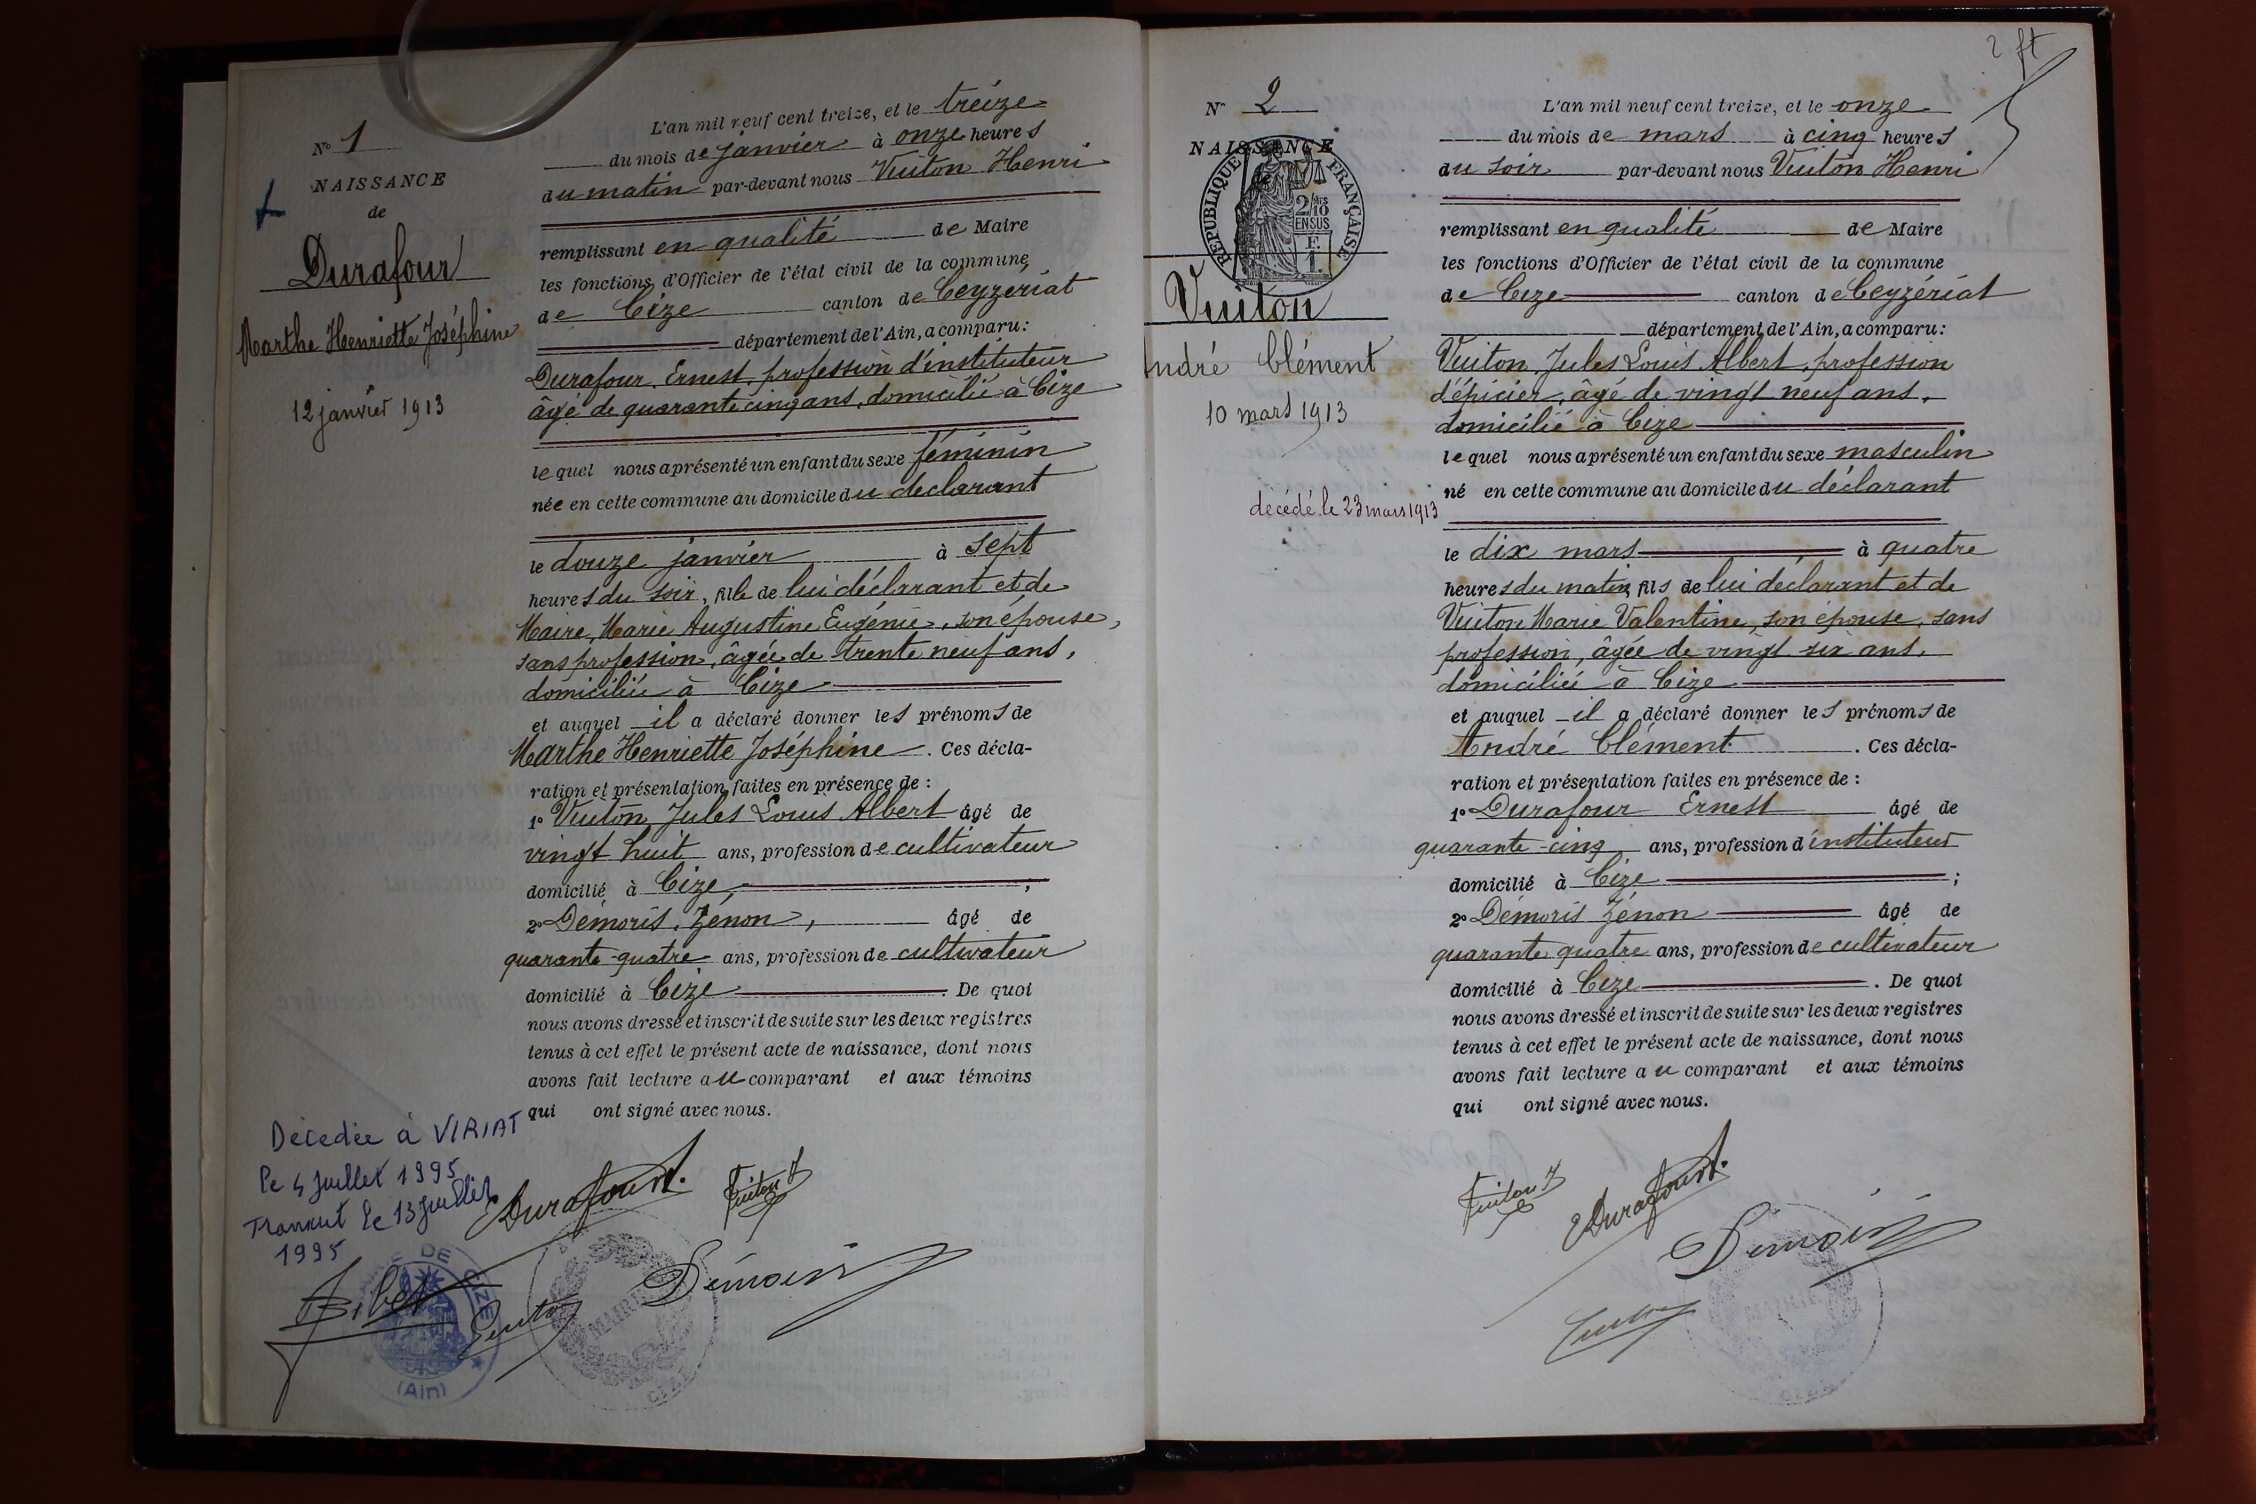 N° 1
NAISSANCE
de
Durafour
Marthe Henriette Joséphine
12 janvier 1913
L'an mil neuf cent treize, et le treize
du mois de janvier à onze heures
du matin par-devant nous Vuiton Henri
remplissant en qualité de Maire
les fonctions d'Officier de l'état civil de la commune
de Cize canton de Ceyzériat
département de l'Ain, a comparu:
Durafour, Ernest, profession d'instituteur
âgé de quarante cinq ans, domicilié à Cize
lequel nous a présenté un enfant du sexe féminin
née en cette commune au domicile du déclarant
le douze janvier à sept
heures du soir, fille de lui déclarant et de
Maire, Marie Augustine Eugénie, son épouse,
sans profession, âgée de trente neuf ans,
domiciliée à Cize
et auquel il a déclaré donner les prénoms de
Marthe Henriette Joséphine. Ces décla-
ration et présentation faites en présence de :
1° Vuiton, Jules Louis Albert âgé de
vingt huit ans, profession de cultivateur
domicilié à Cize, ;
2° Démoris, Zénon, âgé de
quarante-quatre ans, profession de cultivateur
domicilié à Cize. De quoi
nous avons dressé et inscrit de suite sur les deux registres
tenus à cet effet le présent acte de naissance, dont nous
avons fait lecture au comparant et aux témoins
qui ont signé avec nous.
Décédée à VIRIAT
le 4 Juillet 1995
Transcrit le 13 Juillet
1995
EDurafour
Vuiton J
Démoris
Vuiton
MAIRIE DE CIZE
(Ain)
MAIRIE
CIZE
2 ft
N° 2
NAISSANCE
de
RÉPUBLIQUE FRANÇAISE
2/10
EN SUS
F.
1.
Vuiton
André Clément
10 mars 1913
décédé le 23 mars 1913
L'an mil neuf cent treize, et le onze
du mois de mars à cinq heures
du soir par-devant nous Vuiton Henri
remplissant en qualité de Maire
les fonctions d'Officier de l'état civil de la commune
de Cize canton de Ceyzériat
département de l'Ain, a comparu:
Vuiton, Jules Louis Albert, profession
d'épicier, âgé de vingt neuf ans,
domicilié à Cize
lequel nous a présenté un enfant du sexe masculin
né en cette commune au domicile du déclarant
le dix mars à quatre
heures du matin, fils de lui déclarant et de
Vuiton Marie Valentine, son épouse, sans
profession, âgée de vingt six ans,
domiciliée à Cize
et auquel il a déclaré donner les prénoms de
André Clément. Ces décla-
ration et présentation faites en présence de :
1° Durafour Ernest âgé de
quarante-cinq ans, profession d'instituteur
domicilié à Cize ;
2° Démoris Zénon âgé de
quarante quatre ans, profession de cultivateur
domicilié à Cize. De quoi
nous avons dressé et inscrit de suite sur les deux registres
tenus à cet effet le présent acte de naissance, dont nous
avons fait lecture au comparant et aux témoins
qui ont signé avec nous.
Vuiton J
EDurafour
Démoris
Vuiton
MAIRIE
CIZE